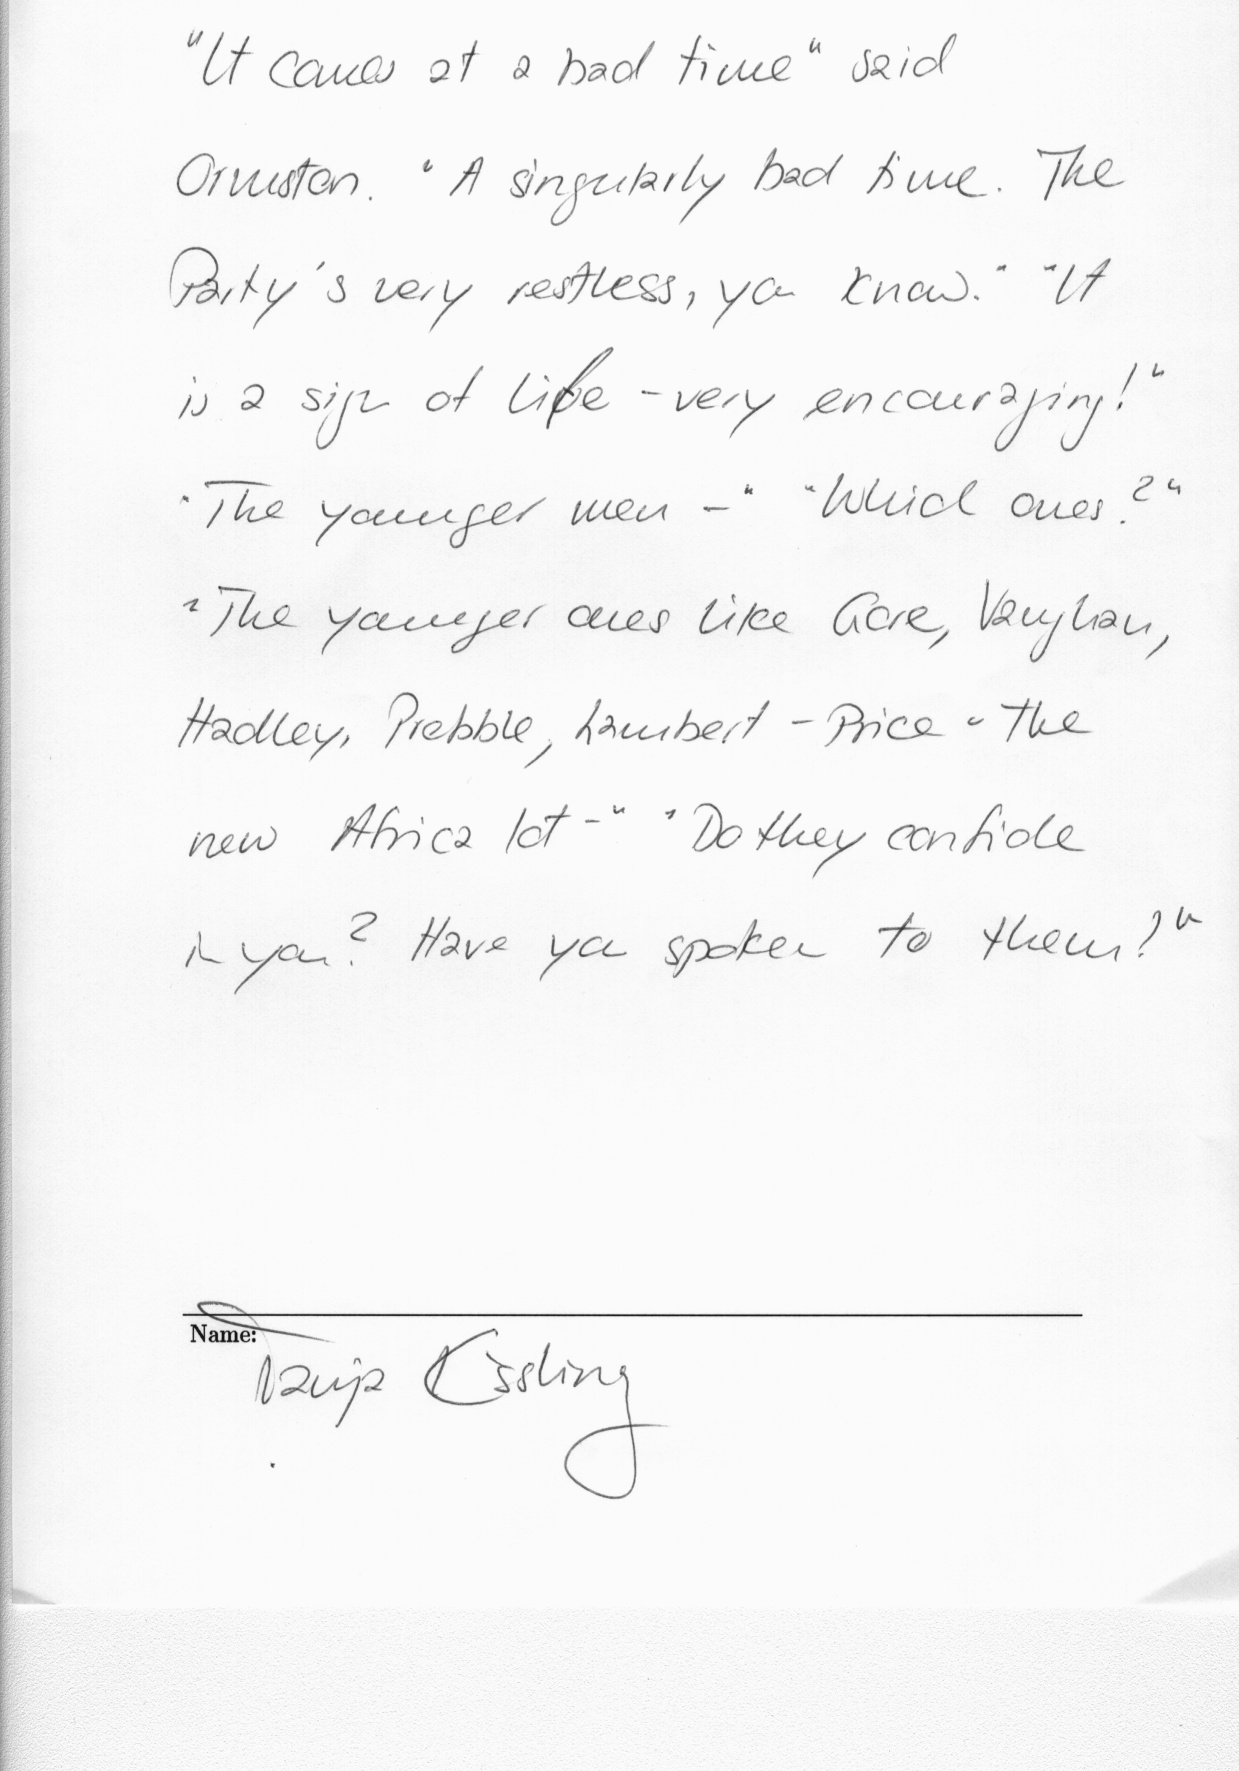 "It comes at a bad time" said
Ormston. "A singularly bad time. The
Party's very restless, you know." "It
is a sign of life - very encouraging!"
"The younger men -" "Which ones?"
"The younger ones like Gore, Vaughan,
Hadley, Prebble, Lambert - Price - the
new Africa lot -" "Do they confide
in you? Have you spoken to them?"
Name:
Tanja Kissling